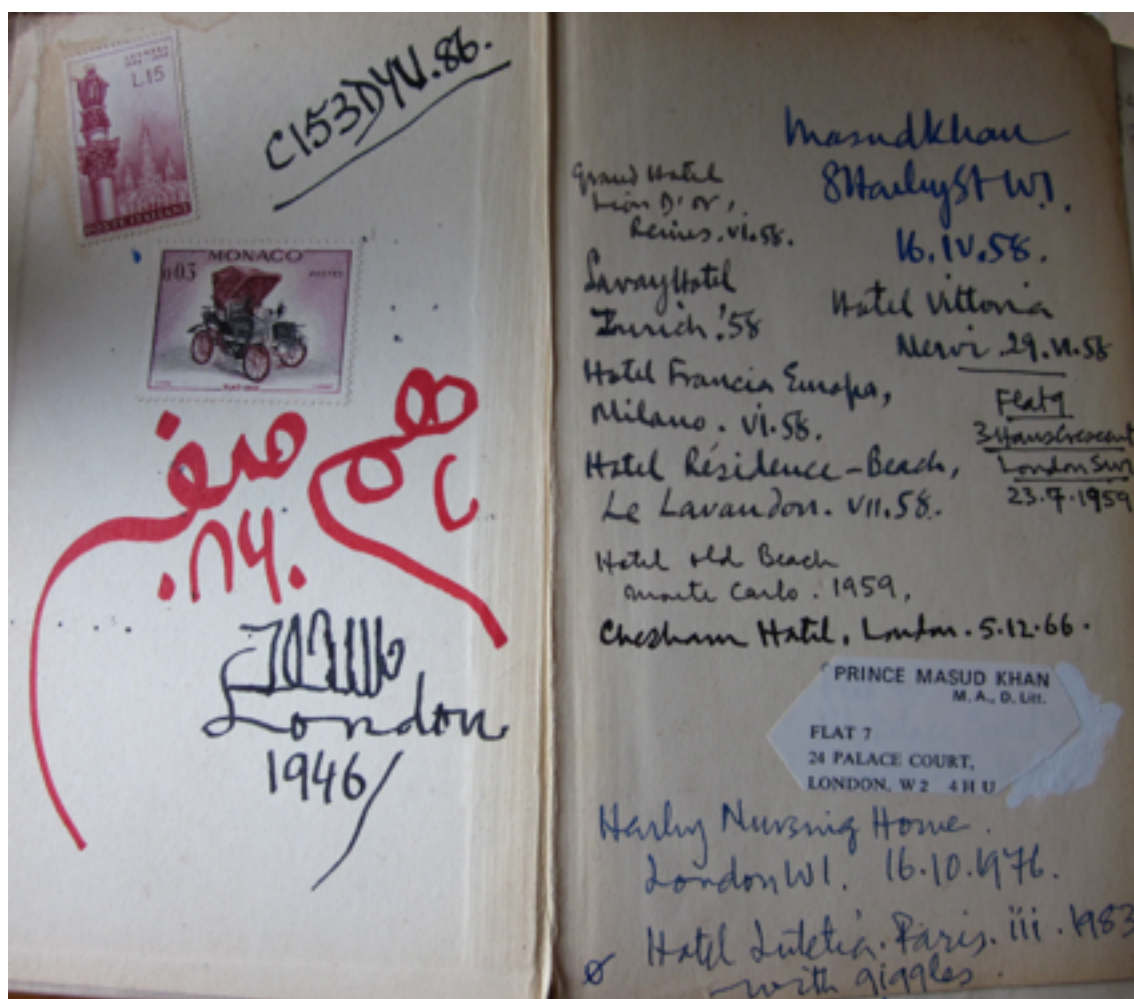 LOURDES
L.15
POSTE ITALIANE
C153DYV.86.
MONACO
0.03
POSTES
London
1946
Masud Khan
8 Harley St W.1.
16.IV.58.
Grand Hotel
Lion D'or,
Reims. VI.58.
Savoy Hotel
Zurich '58
Hotel Vittoria
Nervi. 29.VI.58
Hotel Francia Europa,
Milano. VI.58.
Flat 9
3 Hans Crescent
London SW1
23.7.1959
Hotel Résidence-Beach,
Le Lavandou. VII.58.
Hotel old Beach
Monte Carlo. 1959,
Chesham Hotel, London. 5.12.66.
PRINCE MASUD KHAN
M. A., D. Litt.
FLAT 7
24 PALACE COURT,
LONDON, W2 4HU
Harley Nursing Home.
London W1. 16.10.1976.
Hotel Lutetia. Paris. iii. 1983
with giggles.